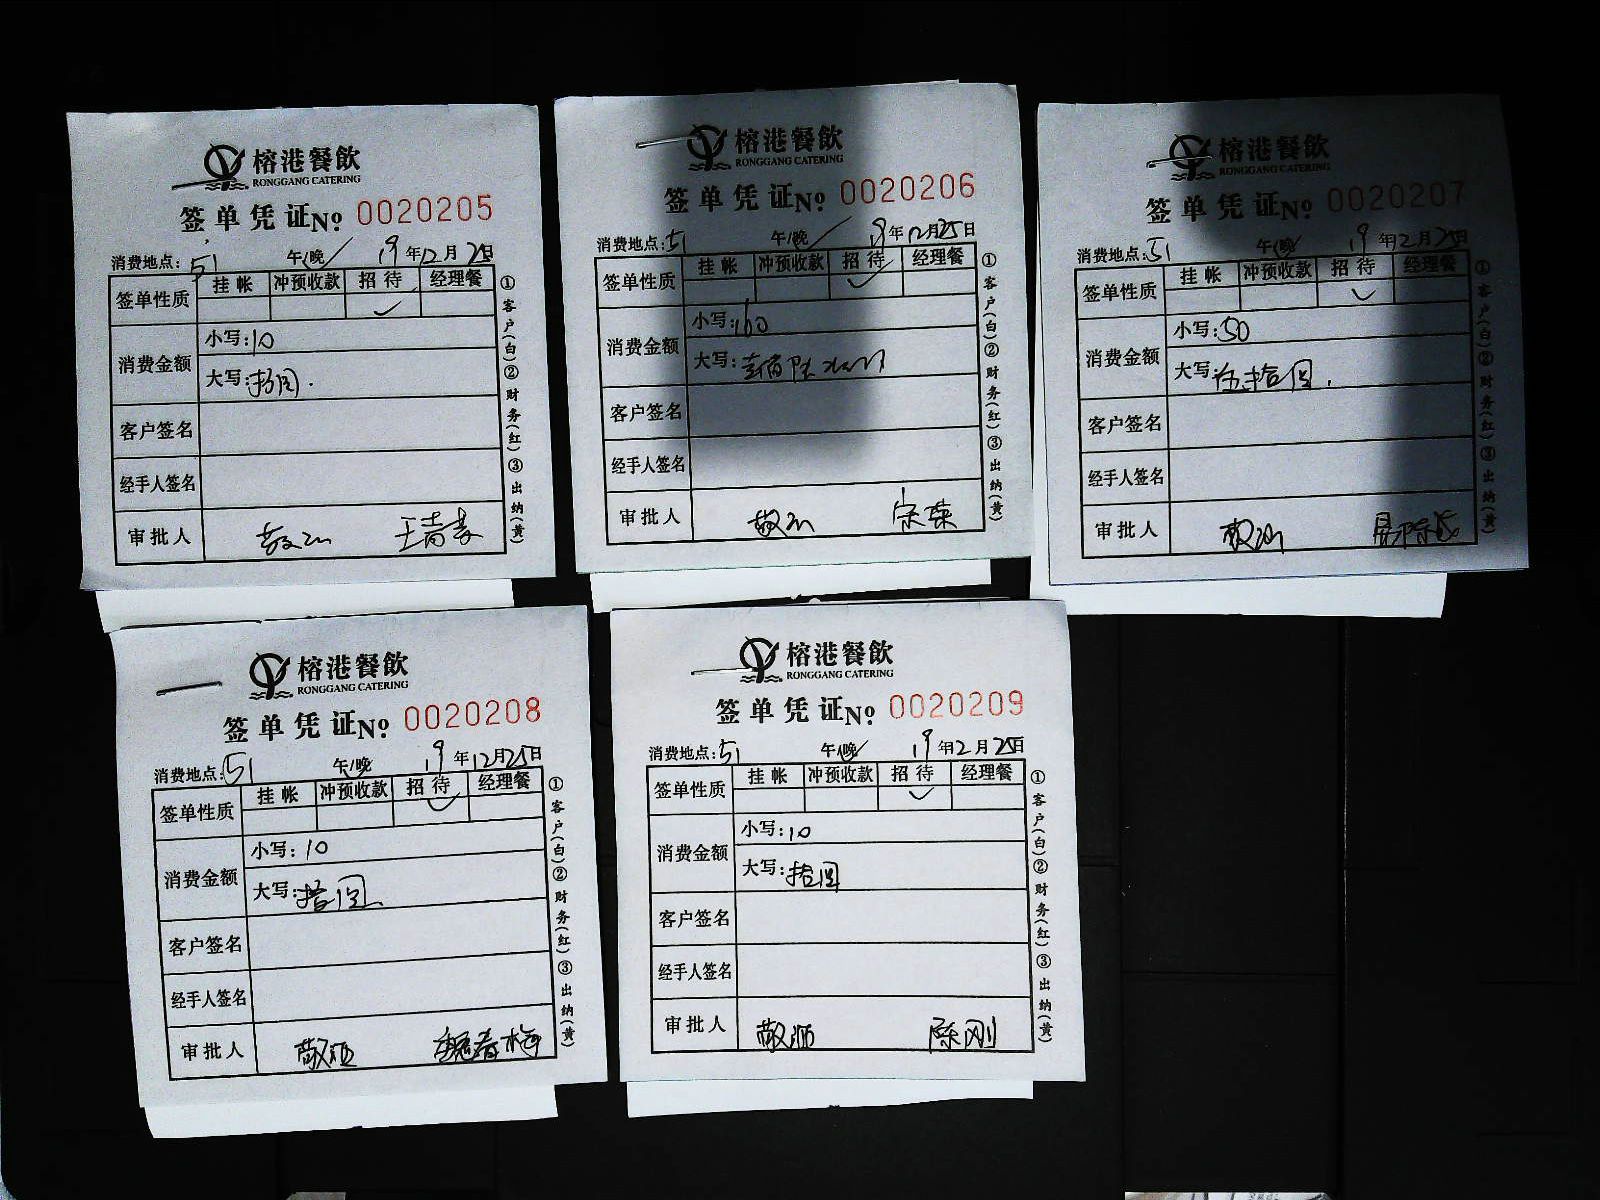 榕港餐飲
RONGGANG CATERING
签单凭证№ 0020205
消费地点: 51 午/晚 19年12月25日
挂帐 冲预收款 招待 经理餐
签单性质
消费金额
小写: 10
大写: 拾圆.
客户签名
经手人签名
审批人 王青春
①客户(白)②财务(红)③出纳(黄)
榕港餐飲
RONGGANG CATERING
签单凭证№ 0020206
消费地点: 51 午/晚 19年12月25日
挂帐 冲预收款 招待 经理餐
签单性质
消费金额
小写: 160
大写: 壹佰陆拾
客户签名
经手人签名
审批人
①客户(白)②财务(红)③出纳(黄)
榕港餐飲
RONGGANG CATERING
签单凭证№ 0020207
消费地点: 51 午/晚 19年12月25日
挂帐 冲预收款 招待 经理餐
签单性质
消费金额
小写: 50
大写: 伍拾圆.
客户签名
经手人签名
审批人
①客户(白)②财务(红)③出纳(黄)
榕港餐飲
RONGGANG CATERING
签单凭证№ 0020208
消费地点: 51 午/晚 19年12月25日
挂帐 冲预收款 招待 经理餐
签单性质
消费金额
小写: 10
大写: 拾圆
客户签名
经手人签名
审批人 魏春梅
①客户(白)②财务(红)③出纳(黄)
榕港餐飲
RONGGANG CATERING
签单凭证№ 0020209
消费地点: 51 午/晚 19年12月25日
挂帐 冲预收款 招待 经理餐
签单性质
消费金额
小写: 10
大写: 拾圆
客户签名
经手人签名
审批人 陈刚
①客户(白)②财务(红)③出纳(黄)